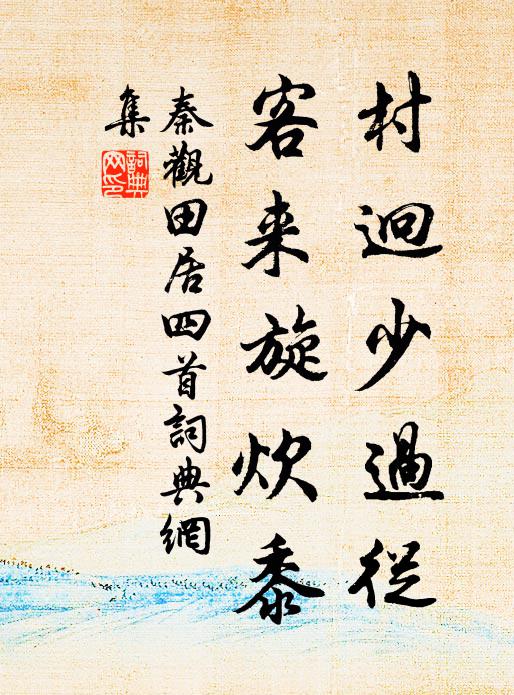 村迥少過從
客来旋炊黍
秦觀田居四首詞典網
集
詞典網印